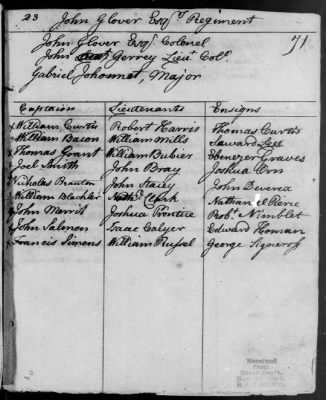 23 John Glover Esqr. Regiment
71
John Glover Esqr. Colonel
John Gerrey Lieu. Colo.
Gabriel Johonnet, Major
Captains Lieutenants Ensigns
x William Curtis Robert Harris Thomas Curtis
x William Bacon William Mills Edward Lee
x Thomas Grant William Bubier Ebenezer Graves
x Joel Smith John Bray Joshua Orn
Nicholas Broughton John Stacey John Deverea
x William Blackler Nathl. Clark Nathaniel Pearce
x John Merrit Joshua Prentice Robt. Nimblet
x John Salmon Isaac Colyer Edward Homan
x Francis Simons William Russel George
Received
from
State Dept.